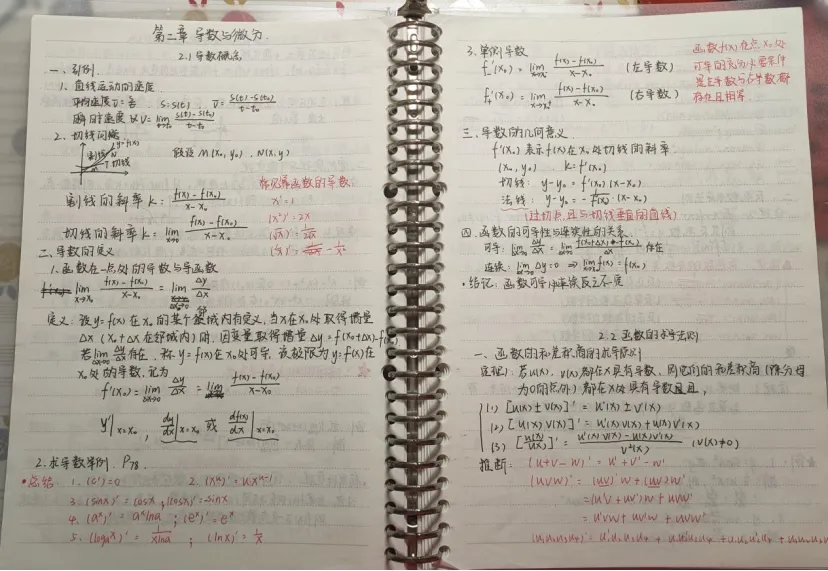 第二章 导数与微分.
2.1 导数概念
一、引例.
1. 直线运动的速度
平均速度 s=s(t) v̄ = (s(t)-s(t₀))/(t-t₀)
瞬时速度 v = lim t→t₀ (s(t)-s(t₀))/(t-t₀)
2. 切线问题
y=f(x)
割线 N
T 切线
M
假设 M(x₀, y₀). N(x, y)
常见幂函数的导数:
x'=1
(x²)'=2x
割线的斜率 k = (f(x)-f(x₀))/(x-x₀)
切线的斜率 k = lim x→x₀ (f(x)-f(x₀))/(x-x₀)
二、导数的定义
1. 函数在一点处的导数与导函数
lim x→x₀ (f(x)-f(x₀))/(x-x₀) = lim Δx→0 Δy/Δx
定义: 设 y=f(x) 在 x₀ 的某个邻域内有定义, 当x在x₀处取得增量
Δx (x₀+Δx 在邻域内) 时, 因变量取得增量 Δy = f(x₀+Δx)-f(x₀)
若 lim Δx→0 Δy/Δx 存在, 称 y=f(x) 在 x₀ 处可导, 该极限为 y=f(x) 在
x₀ 处的导数, 记为
f'(x₀) = lim Δx→0 Δy/Δx = lim (f(x)-f(x₀))/(x-x₀)
y'|x=x₀ , dy/dx|x=x₀ 或 df(x)/dx|x=x₀
2. 求导数举例. P78.
•总结: 1. (C)'=0 2. (xᵘ)'=u·xᵘ⁻¹
3. (sinx)'=cosx, (cosx)'=-sinx
4. (aˣ)'=aˣlna ; (eˣ)'=eˣ
5. (logₐx)'= 1/(xlna) ; (lnx)'= 1/x
3. 单侧导数
f₋'(x₀) = lim (f(x)-f(x₀))/(x-x₀) (左导数)
f₊'(x₀) = lim (f(x)-f(x₀))/(x-x₀) (右导数)
函数f(x)在点x₀处
可导的充分必要条件
是左导数与右导数都
存在且相等.
三、导数的几何意义
f'(x₀) 表示f(x)在x₀处切线的斜率
(x₀, y₀) k=f'(x₀)
切线: y-y₀ = f'(x₀)(x-x₀)
法线: y-y₀ = -1/f'(x₀)·(x-x₀)
(过切点且与切线垂直的直线)
四、函数的可导性与连续性的关系
可导: lim Δx→0 Δy/Δx = lim Δx→0 (f(x₀+Δx)-f(x₀))/Δx 存在
连续: lim Δx→0 Δy=0 ⇒ lim x→x₀ f(x)=f(x₀)
2.2 函数的求导法则
一、函数的和差积商的求导法则
定理1: 若u(x), v(x)都在x具有导数, 则它们的和差积商(除分母
为0的点外)都在x处具有导数且,
(1) [u(x)±v(x)]' = u'(x)±v'(x)
(2) [u(x)v(x)]' = u'(x)v(x)+u(x)v'(x)
(3) [u(x)/v(x)]' = (u'(x)v(x)-u(x)v'(x))/v²(x) (v(x)≠0)
推断: (u+v-w)' = u'+v'-w'
(uvw)' = (uv)'w+(uv)w'
=(u'v+uv')w+uvw'
=u'vw+uv'w+uvw'